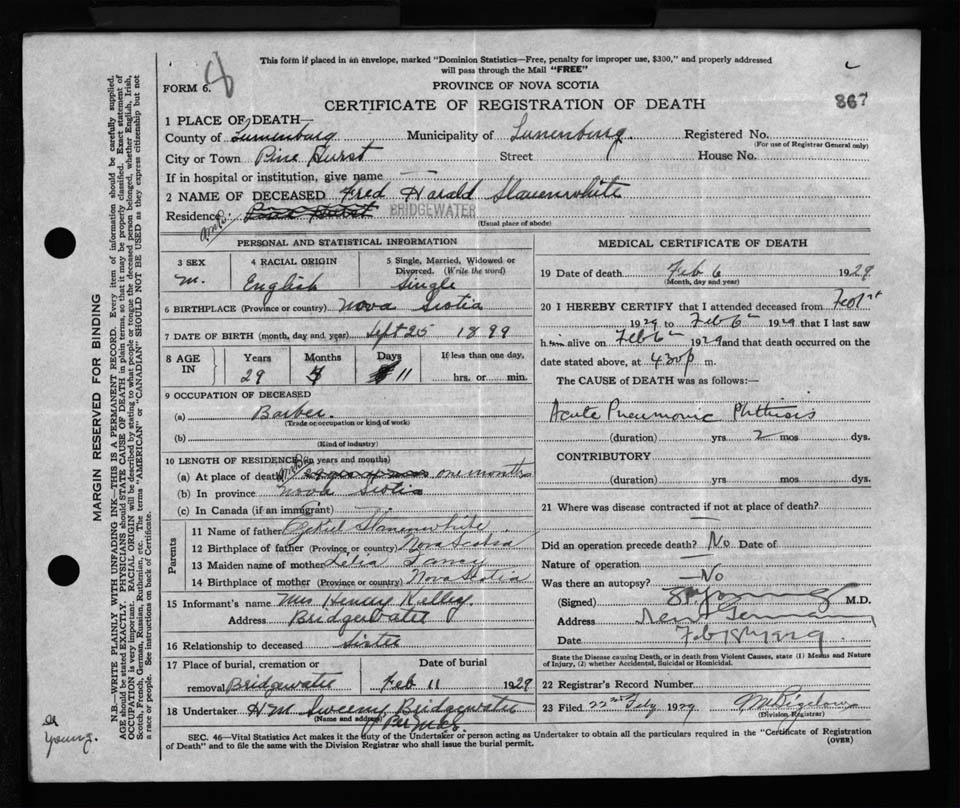 This form if placed in an envelope, marked "Dominion Statistics—Free, penalty for improper use, $300," and properly addressed
will pass through the Mail "FREE"
FORM 6.
PROVINCE OF NOVA SCOTIA
CERTIFICATE OF REGISTRATION OF DEATH
867
1 PLACE OF DEATH—
County of Lunenburg Municipality of Lunenburg. Registered No.
(For use of Registrar General only)
City or Town Pine Hurst Street House No.
If in hospital or institution, give name —
2 NAME OF DECEASED Fred Harald Slauenwhite
Residence Pine Hurst BRIDGEWATER
(Usual place of abode)
PERSONAL AND STATISTICAL INFORMATION
3 SEX 4 RACIAL ORIGIN 5 Single, Married, Widowed or
Divorced. (Write the word)
M. English Single
6 BIRTHPLACE (Province or country) Nova Scotia
7 DATE OF BIRTH (month, day, and year) Sept 25 1899
8 AGE IN Years Months Days If less than one day,
29 11 hrs. or min.
9 OCCUPATION OF DECEASED
(a) Barber.
(Trade or occupation or kind of work)
(b)
(Kind of industry)
10 LENGTH OF RESIDENCE (in years and months)
(a) At place of death one months
(b) In province Nova Scotia
(c) In Canada (if an immigrant) —
Parents
11 Name of father Ezekiel Slauenwhite
12 Birthplace of father (Province or country) Nova Scotia
13 Maiden name of mother Lelia
14 Birthplace of mother (Province or country) Nova Scotia
15 Informant's name Mrs Henry Kelley
Address Bridgewater
16 Relationship to deceased Sister
17 Place of burial, cremation or Date of burial
removal Bridgewater Feb 11 1929
18 Undertaker H M Sweeny Bridgewater
(Name and address)
MEDICAL CERTIFICATE OF DEATH
19 Date of death Feb 6 1929
(Month, day and year)
20 I HEREBY CERTIFY that I attended deceased from Feb 1st
1929 to Feb 6 1929 that I last saw
him alive on Feb 6 1929 and that death occurred on the
date stated above, at 4 30 p m.
The CAUSE of DEATH was as follows:—
Acute Pneumonic Phthisis
(duration) yrs 2 mos dys.
CONTRIBUTORY
(duration) yrs. mos. dys.
21 Where was disease contracted if not at place of death?
—
Did an operation precede death? No Date of
Nature of operation
Was there an autopsy? —No
(Signed) M.D.
Address New Germany
Date
State the Disease causing Death, or in death from Violent Causes, state (1) Means and Nature
of Injury, (2) whether Accidental, Suicidal or Homicidal.
22 Registrar's Record Number
23 Filed 22nd Feby 1929
(Division Registrar)
SEC. 46—Vital Statistics Act makes it the duty of the Undertaker or person acting as Undertaker to obtain all the particulars required in the "Certificate of Registration
of Death" and to file the same with the Division Registrar who shall issue the burial permit.
(OVER)
MARGIN RESERVED FOR BINDING
N.B.—WRITE PLAINLY WITH UNFADING INK—THIS IS A PERMANENT RECORD. Every item of information should be carefully supplied.
AGE should be stated EXACTLY. PHYSICIANS should STATE CAUSE OF DEATH in plain terms, so that it may be properly classified. Exact statement of
OCCUPATION is very important. RACIAL ORIGIN will be described by stating to what people or tongue the deceased person belonged, whether English, Irish,
Scotch, French, German, Russian, Ruthenian, etc. The terms "AMERICAN" or "CANADIAN" SHOULD NOT BE USED as they express citizenship but not
a race or people. See instructions on back of Certificate.
Young.